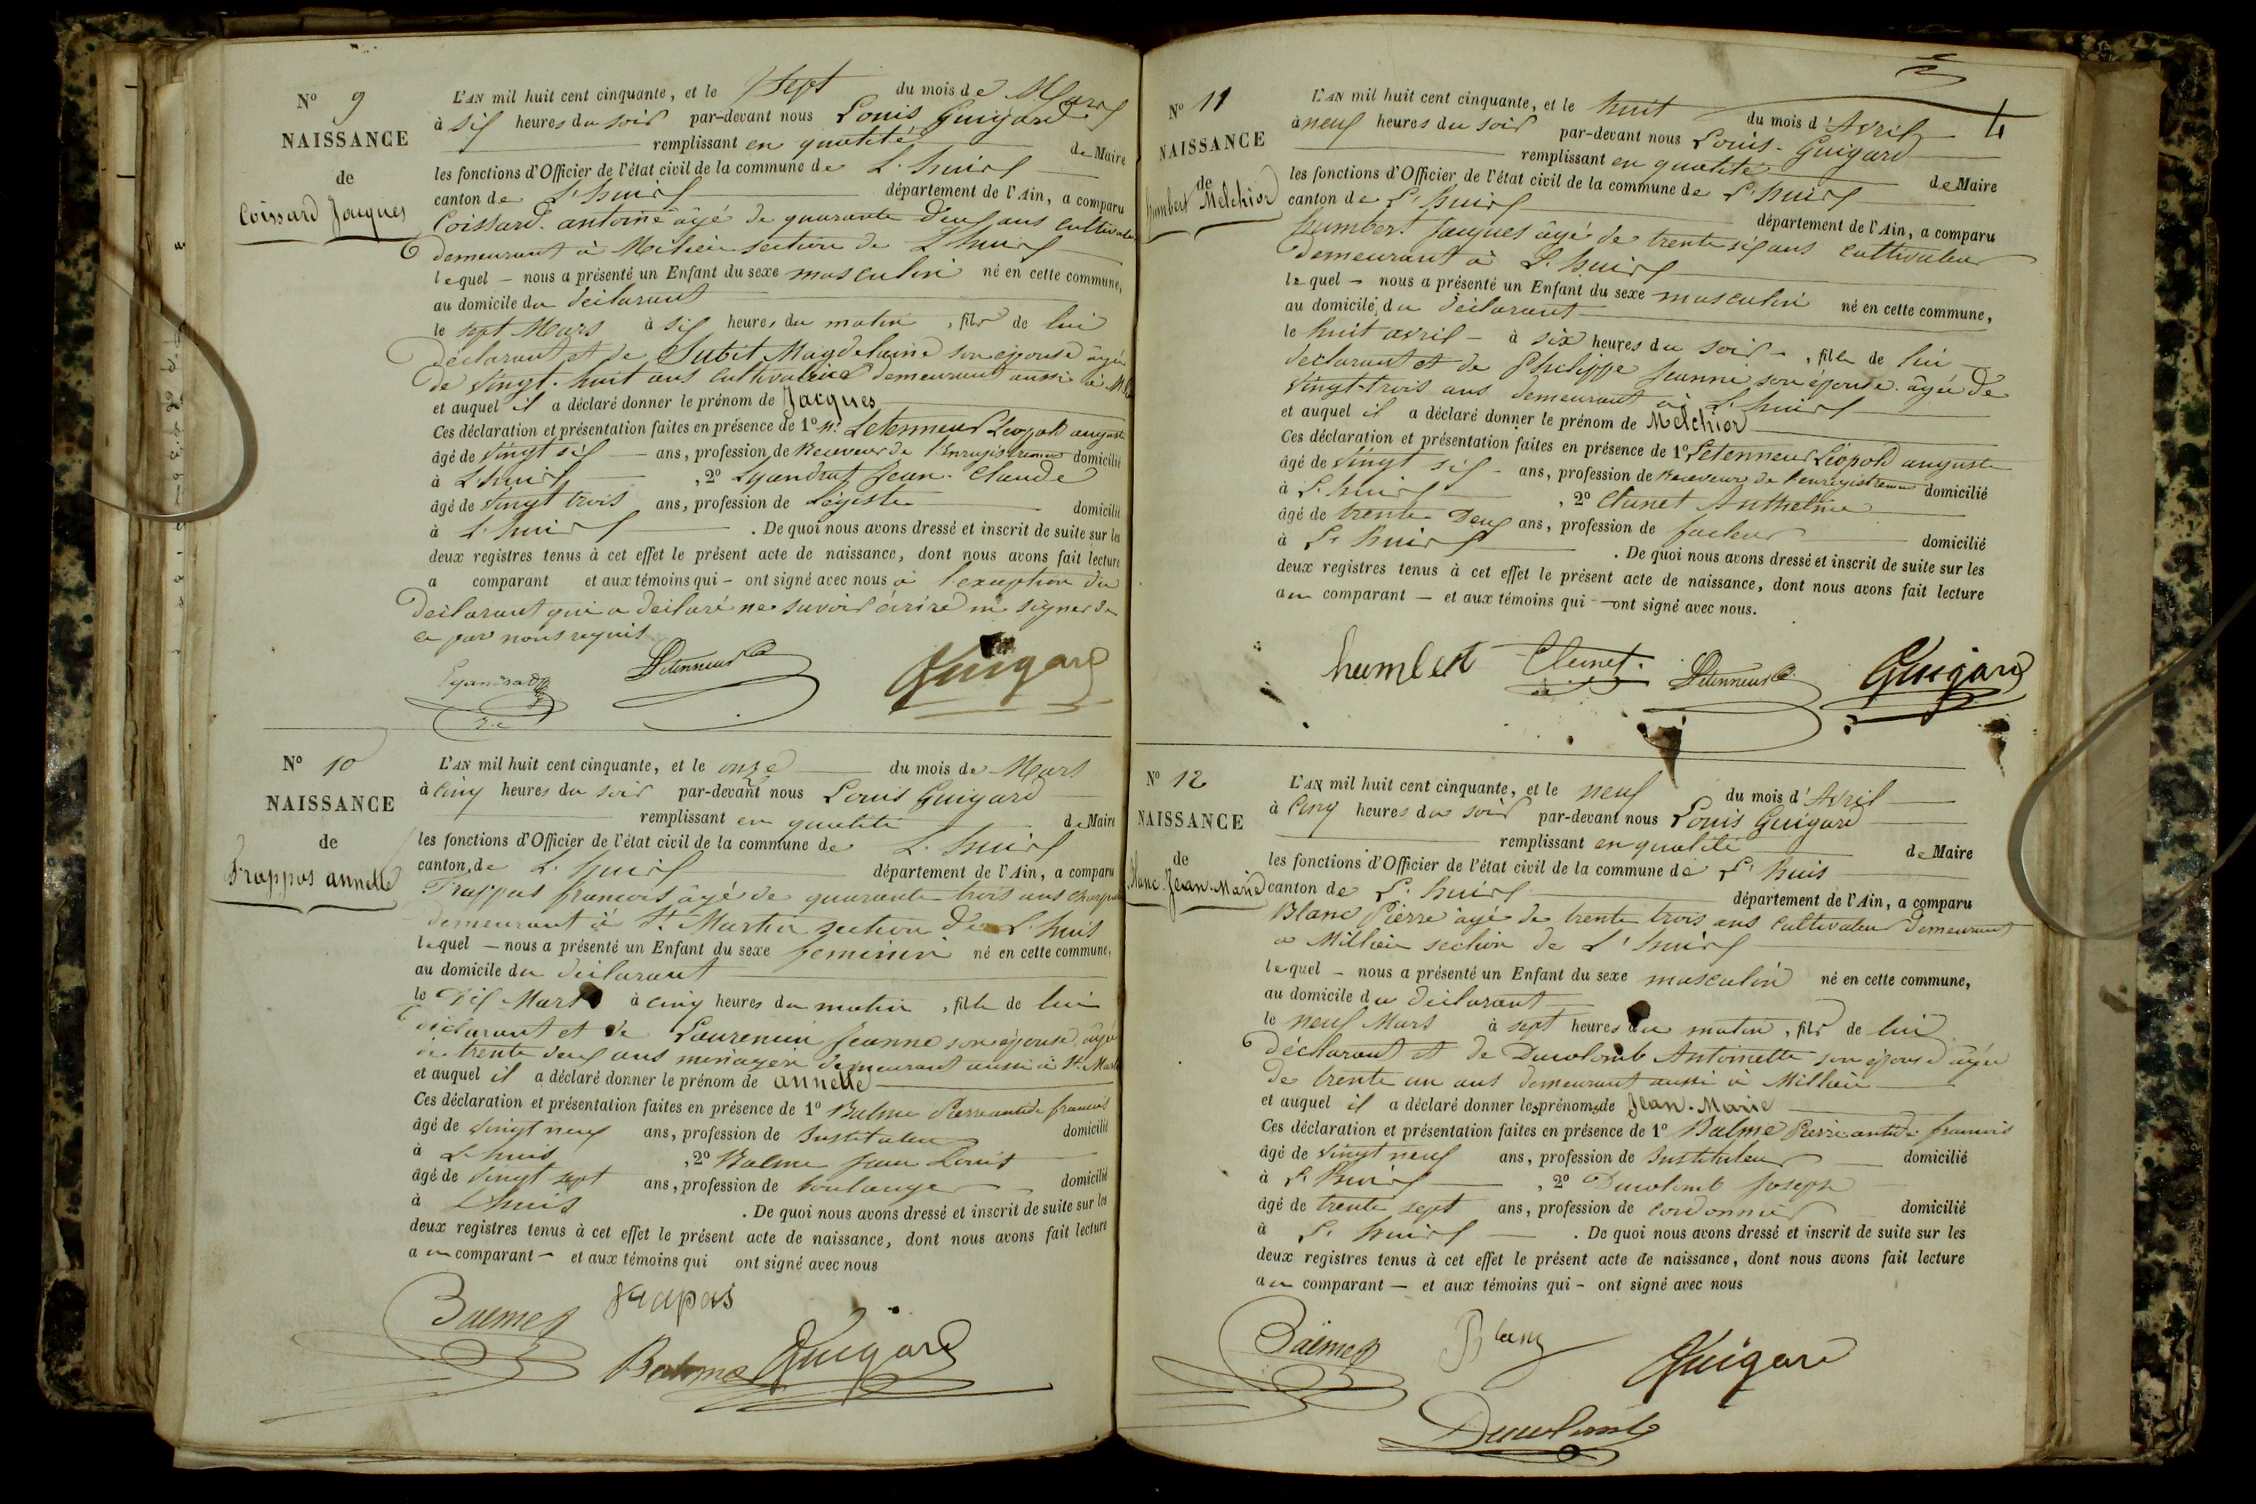 N° 9
NAISSANCE
de
Coissard Jacques
L'AN mil huit cent cinquante, et le Sept du mois de Mars
à six heures du soir par-devant nous Louis Guigard
remplissant en qualité de Maire
les fonctions d'Officier de l'état civil de la commune de L'huis
canton de L'huis département de l'Ain, a comparu
Coissard antoine âgé de quarante deux ans cultivateur
demeurant à Milieu section de L'huis
lequel – nous a présenté un Enfant du sexe masculin né en cette commune,
au domicile du déclarant
le sept Mars à six heures du matin, fils de lui
déclarant et de Subit Magdelaine son épouse âgée
de vingt-huit ans cultivatrice demeurant aussi à
et auquel il a déclaré donner le prénom de Jacques
Ces déclaration et présentation faites en présence de 1° Mr Letenneur Léopold auguste
âgé de vingt six ans, profession de Receveur de l'enregistrement domicilié
à L'huis, 2° Lyandrat Jean-Claude
âgé de vingt trois ans, profession de Légiste domicilié
à L'huis. De quoi nous avons dressé et inscrit de suite sur les
deux registres tenus à cet effet le présent acte de naissance, dont nous avons fait lecture
a comparant et aux témoins qui – ont signé avec nous à l'exception du
déclarant qui a déclaré ne savoir écrire ni signer de
ce par nous requis
Lyandrat Letenneur Guigard
N° 10
NAISSANCE
de
Frappas annette
L'AN mil huit cent cinquante, et le onze du mois de Mars
à cinq heures du soir par-devant nous Louis Guigard
remplissant en qualité de Maire
les fonctions d'Officier de l'état civil de la commune de L'huis
canton de L'huis département de l'Ain, a comparu
Frappas francois âgé de quarante trois ans
demeurant à St Martin section de L'huis
lequel – nous a présenté un Enfant du sexe feminin né en cette commune,
au domicile du déclarant
le Dix Mars à cinq heures du matin, fille de lui
déclarant et de Laurencin Jeanne son épouse âgée
de trente deux ans ménagère demeurant aussi à St. Martin
et auquel il a déclaré donner le prénom de annette
Ces déclaration et présentation faites en présence de 1° Balme Pierre antide francois
âgé de vingt neuf ans, profession de Instituteur domicilié
à L'huis, 2° Balme Jean Louis
âgé de vingt sept ans, profession de boulanger domicilié
à Lhuis. De quoi nous avons dressé et inscrit de suite sur les
deux registres tenus à cet effet le présent acte de naissance, dont nous avons fait lecture
au comparant – et aux témoins qui ont signé avec nous
Balme frapas
Balme Guigard
4
N° 11
NAISSANCE
de
humbert Melchior
L'AN mil huit cent cinquante, et le huit du mois d'Avril
à neuf heures du soir par-devant nous Louis Guigard
remplissant en qualité de Maire
les fonctions d'Officier de l'état civil de la commune de L'huis
canton de L'huis département de l'Ain, a comparu
humbert Jacques âgé de trente six ans cultivateur
demeurant à L'huis
lequel – nous a présenté un Enfant du sexe masculin né en cette commune,
au domicile du déclarant
le huit avril – à six heures du soir –, fils de lui
déclarant et de Philippe Jeanne son épouse âgée de
vingt-trois ans demeurant à L'huis
et auquel il a déclaré donner le prénom de Melchior
Ces déclaration et présentation faites en présence de 1° Letenneur Léopold auguste
âgé de vingt six – ans, profession de Receveur de l'enregistrement domicilié
à L'huis, 2° Clunet Anthelme
âgé de trente Deux ans, profession de facteur domicilié
à L'huis. De quoi nous avons dressé et inscrit de suite sur les
deux registres tenus à cet effet le présent acte de naissance, dont nous avons fait lecture
au comparant – et aux témoins qui – ont signé avec nous.
humbert Clunet Letenneur Guigard
N° 12
NAISSANCE
de
Blanc Jean-Marie
L'AN mil huit cent cinquante, et le neuf du mois d'Avril
à cinq heures du soir par-devant nous Louis Guigard
remplissant en qualité de Maire
les fonctions d'Officier de l'état civil de la commune de L'huis
canton de L'huis département de l'Ain, a comparu
Blanc Pierre âgé de trente trois ans cultivateur demeurant
à Millieu section de L'huis
lequel – nous a présenté un Enfant du sexe masculin né en cette commune,
au domicile du déclarant
le neuf Mars à sept heures du matin, fils de lui
déclarant et de Ducolomb Antoinette son épouse âgée
de trente un ans demeurant aussi à Millieu
et auquel il a déclaré donner les prénoms de Jean-Marie
Ces déclaration et présentation faites en présence de 1° Balme Pierre antide francois
âgé de vingt neuf ans, profession de Instituteur domicilié
à L'huis, 2° Ducolomb Joseph
âgé de trente sept ans, profession de cordonnier domicilié
à L'huis. De quoi nous avons dressé et inscrit de suite sur les
deux registres tenus à cet effet le présent acte de naissance, dont nous avons fait lecture
au comparant – et aux témoins qui – ont signé avec nous
Balme Blanc Guigard
Ducolomb